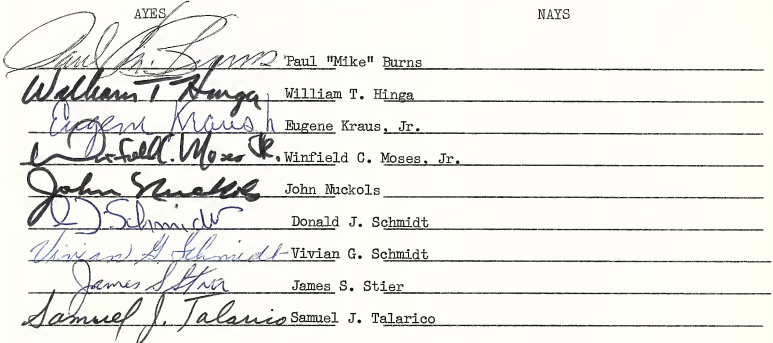 AYES NAYS
Paul M. Burns Paul "Mike" Burns
William T Hinga William T. Hinga
Eugene Kraus Jr Eugene Kraus, Jr.
Winfield C. Moses Jr. Winfield C. Moses, Jr.
John Nuckols John Nuckols
D J Schmidt Donald J. Schmidt
Vivian G. Schmidt Vivian G. Schmidt
James S Stier James S. Stier
Samuel J. Talarico Samuel J. Talarico